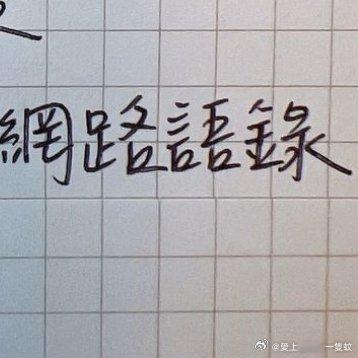 網路語錄
@愛上 一隻蚊